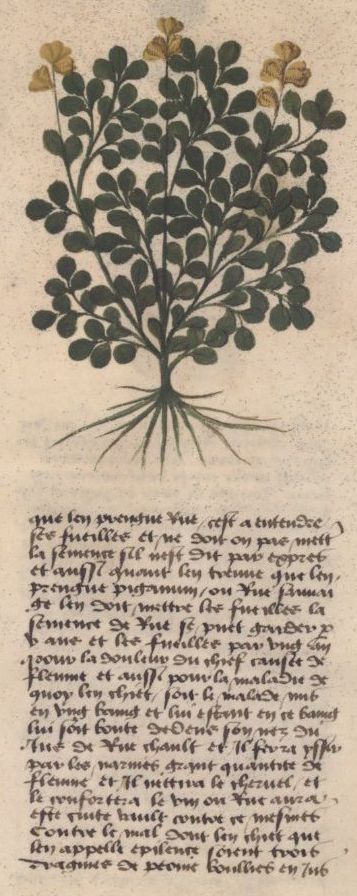 que len prengne Rue / cest a entendre
ses fueilles et ne doit on pas mett
la semence sil nest dit par expres
et aussi quant len treuve que len
prengne piganum / ou Rue sauuai
ge len doit mettre les fueilles la
semence de Rue se puet garder p
v ans et les fueilles par vng an
pour la douleur du chief causee de
fleume et aussi pour la maladie de
quoy len chiet / soit le malade mis
en vng baing et lui estant en ce baing
lui soit boute dedens son nez du
Jus de Rue chault et Il fera yssir
par les narines grant quantite de
fleume et Il nettira le cheruel / et
le confortera le vin ou Rue aura
este cuite vault contre ce mesmes
Contre le mal dont len chiet que
len appelle epilence soient trois
dragmes de peoine boullies en Jus